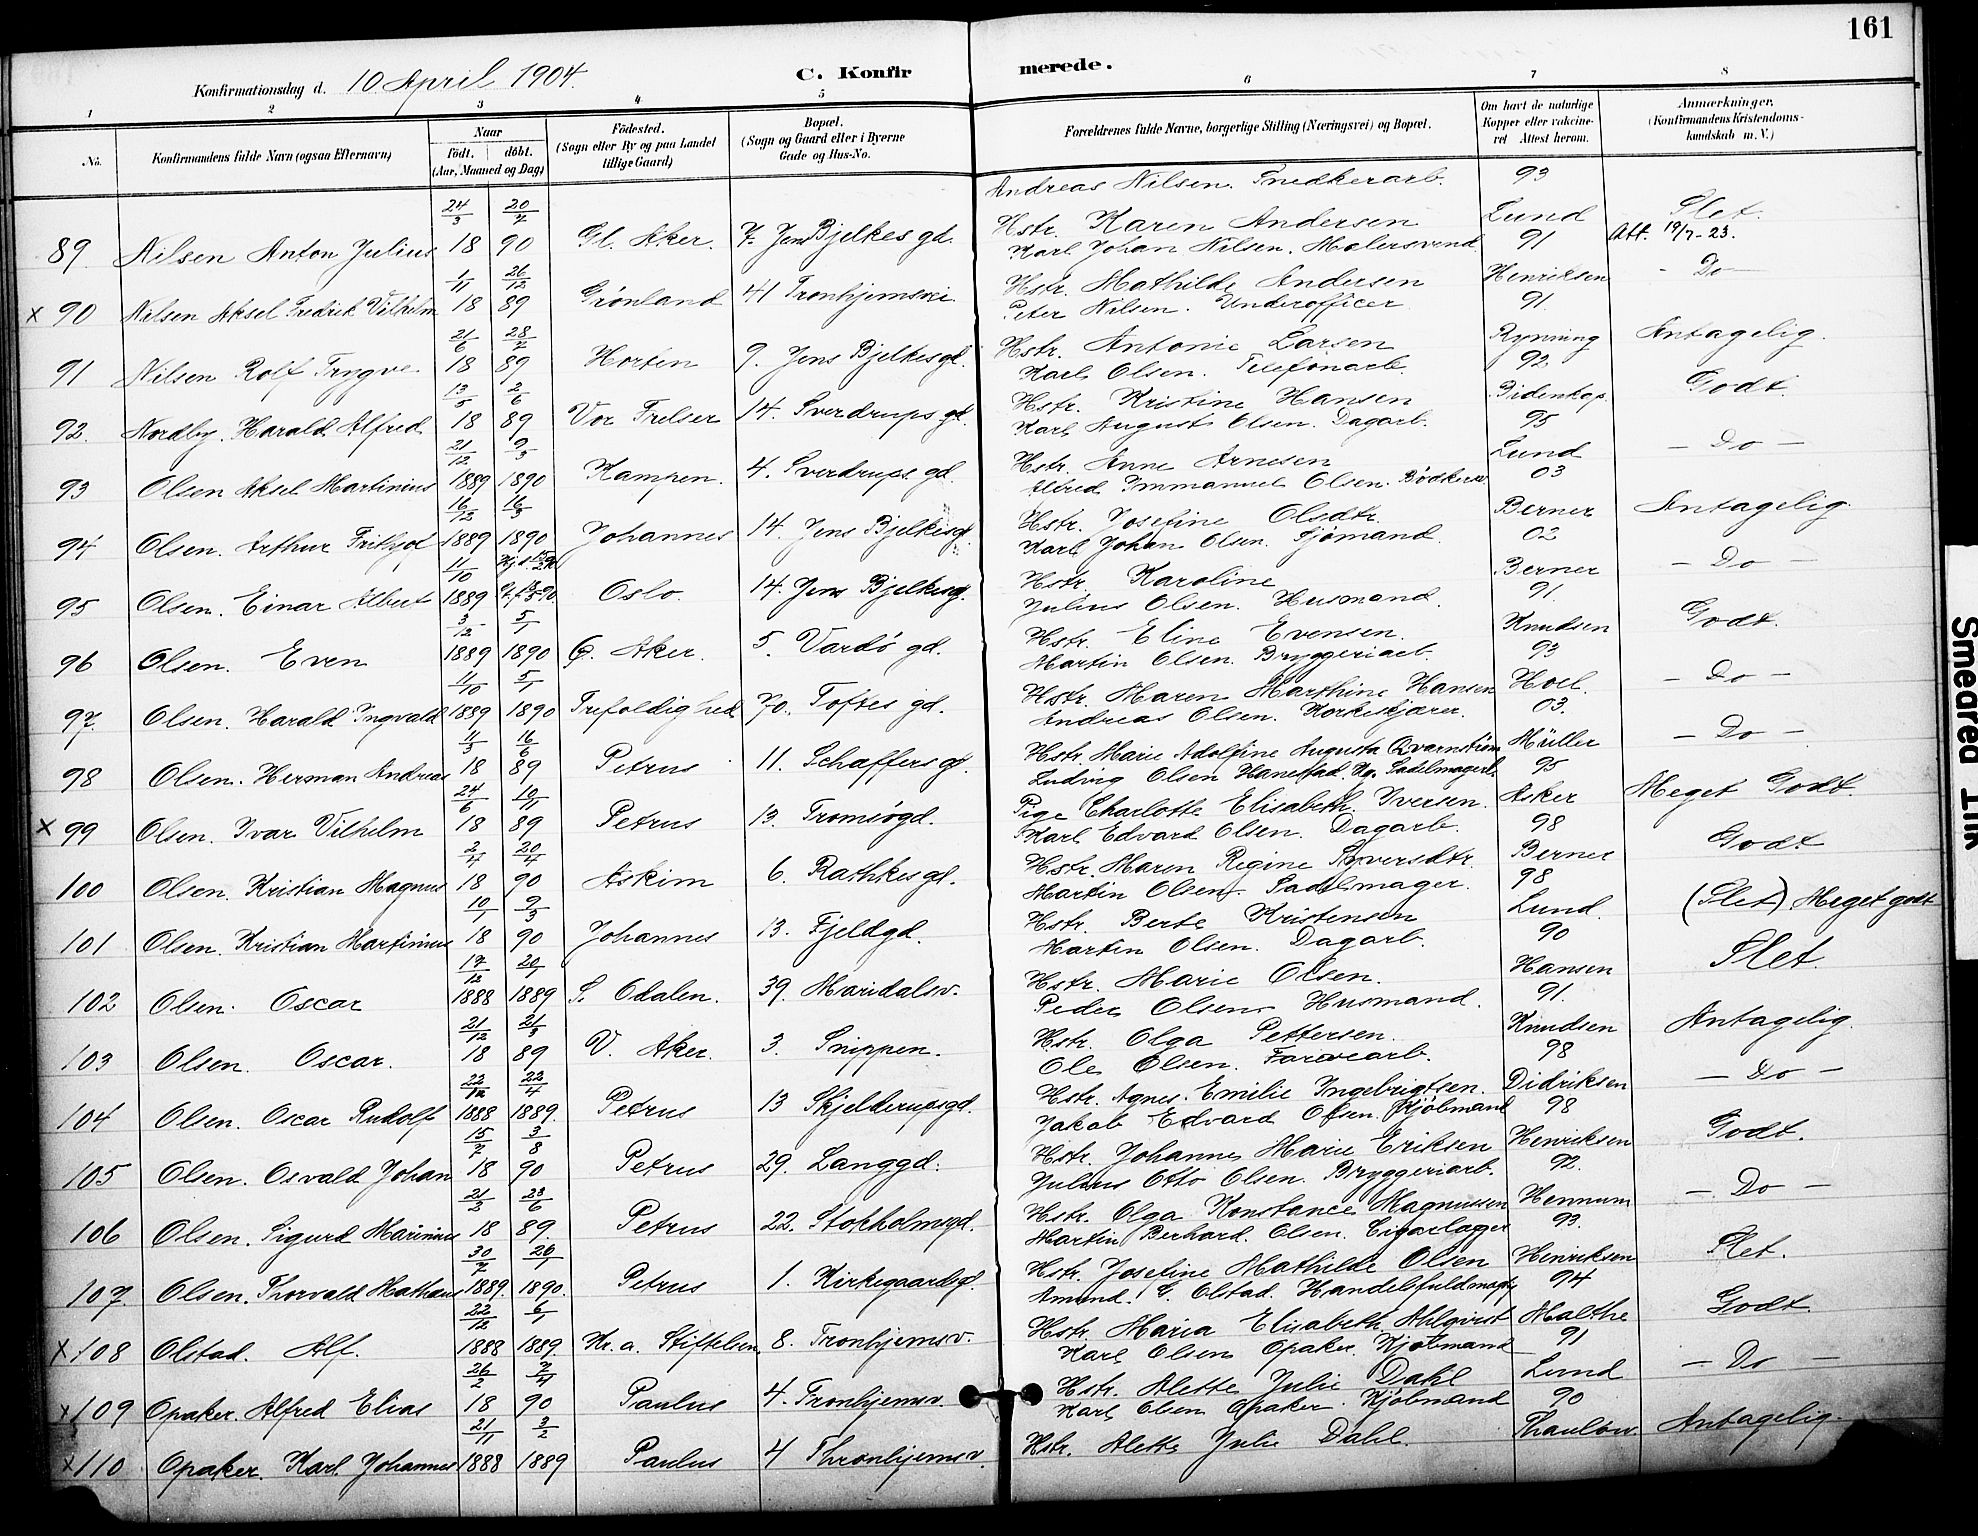 161
Konfirmationsdag d. 10 April 1904.
C. Konfirmerede.
1 2 3 4 5 6 7 8
No. Konfirmandens fulde Navn (ogsaa Efternavn) Naar födt. döbt. (Aar, Maaned og Dag) Födested. (Sogn eller By og paa Landet tillige Gaard) Bopæl. (Sogn og Gaard eller i Byerne Gade og Hus-No. Forældrenes fulde Navne, borgerlige Stilling (Næringsvei) og Bopæl. Om havt de naturlige Kopper eller vaccineret Attest herom. Anmærkninger, (Konfirmandens Kristendomskundskab m. V.)
Andreas Nilsen. Snedkerarb. 93
24/3 20/7
89 Nilsen Anton Julius 18 90 Gl. Aker. 7. Jens Bjelkes gd. Hstr. Karen Andersen Lund Slet.
Karl Johan Nilsen. Malersvend 91 Att. 19/7-23.
1/11 26/12
x 90 Nilsen Aksel Fredrik Vilhelm 18 89 Grönland 41 Tronhjemsvei Hstr. Mathilde Andersen Henriksen - Do -
Peter Nilsen. Underofficer 91.
21/6 28/7
91 Nilsen Rolf Trygve 18 89 Horten 9. Jens Bjelkesgd. Hstr. Antonie Larsen Rynning Antagelig.
Karl Olsen. Telefonarb. 92
13/5 2/6
92. Nordby. Harald Alfred 18 89 Vor Frelser 14. Sverdrups gd. Hstr. Kristine Hansen Bidenkap. Godt.
Karl August Olsen. Dagarb. 95
21/12 9/3
93 Olsen Aksel Martinius 1889 1890 Kampen. 4. Sverdrups gd. Hstr. Anne Arnesen Lund - Do -
Alfred Immanuel Olsen. Bödkersv. 03
16/12 16/3
94 Olsen. Arthur Frithjof 1889 1890 Johannes 14. Jens Bjelkesgd. Hstr. Josefine Olsdtr. Berner Antagelig.
Karl Johan Olsen. Sjömand. 02
11/10
95 Olsen. Einar Albert 1889 Oslo. 14. Jens Bjelkesgd. Hstr. Karoline Berner - Do -
Julius Olsen. Husmand. 91.
3/12 5/1
96 Olsen. Even 1889 1890 Ø. Aker. 5. Vardö gd. Hstr. Eline Evensen. Knudsen Godt.
Martin Olsen. Bryggeriarb. 93
11/10 5/1
97. Olsen. Harald Ingvald 1889 1890 Trefoldighed 70. Toftes gd. Hstr. Maren Marthine Hansen Hoel. - Do -
Andreas Olsen. Korkskjærer. 03.
11/3 16/6
98 Olsen. Herman Andreas 18 89 Petrus 11. Schaffers gt. Hstr. Marie Adolfine Augusta Qvarnström Müller - Do -
Ludvig Olsen Hanestad. Ug. Sadelmagerb. 95
24/6 10/11
x 99 Olsen. Ivar Vilhelm 18 89 Petrus 13. Tromsögd. Pige Charlotte Elisabeth. Iversen. Asker Meget Godt.
Karl Edvard Olsen. Dagarb. 98
2/4 20/4
100 Olsen. Kristian Magnus 18 90 Askim 6. Rathkes gd. Hstr. Maren Regine Syversdtr. Berner Godt
Martin Olsen. Sadelmager. 98
10/1 9/3
101 Olsen. Kristian Martinius 18 90 Johannes 13. Fjeldgd. Hstr. Berte Kristensen Lund. (Slet) Meget godt
Martin Olsen. Dagarb. 90
17/12 20/1
102 Olsen. Oscar 1888 1889 S. Odalen. 39. Maridalsv. Hstr. Marie Olsen. Hansen Slet.
Peder Olsen Husmand. 91.
21/12 21/3
103 Olsen. Oscar. 18 89 V. Aker. 3. Snippen. Hstr. Olga Pettersen. Knudsen Antagelig.
Ole Olsen. Farvearb. 98
22/12 22/4
104 Olsen. Oscar Rudolf 1888 1889. Petrus 13 Skjelderupsgd. Hstr. Agnes. Emilie Ingebrigtsen. Didriksen - Do -
Jakob Edvard Olsen. Kjöbmand 98
15/7 3/8
105 Olsen. Osvald Johan 18 90 Petrus 29. Langgd. Hstr. Johanne Marie Eriksen Henriksen Godt.
Julius Otto Olsen. Bryggeriarb. 92.
21/2 23/6
106 Olsen. Sigurd Marinius 18 89. Petrus 22. Stokholmsgd. Hstr. Olga Konstance Magnussen Hennum - Do -
Martin Berhard. Olsen. Cigarlager 93.
30/7 26/1
107. Olsen. Thorvald Mathæus 1889. 1890. Petrus 1. Kirkegaardsgd. Hstr. Josefine Mathilde Olsen Henriksen Slet.
Amund. G. Olstad. Handelsfuldmægtig 94
22/12 6/1
x 108 Olstad. Alf. 1888 1889. Kr. a. Stiftelsen 8. Tronhjemsv. Hstr. Maria Elisabeth Ahlqvist Malthe Godt
Karl Olsen Opaker. Kjöbmand 91
26/2 7/4
x 109 Opaker. Alfred Elias 18 90 Paulus 4. Tronhjemsv. Hstr. Alette Julie Dahl Lund - Do -
Karl Olsen Opaker. Kjöbmand 90
21/11 3/2
x 110 Opaker. Karl Johannes 1888 1889 Paulus 4 Thronhjemsv. Hstr. Alette Julie Dahl. Thaulow Antagelig.
Smeared Ink